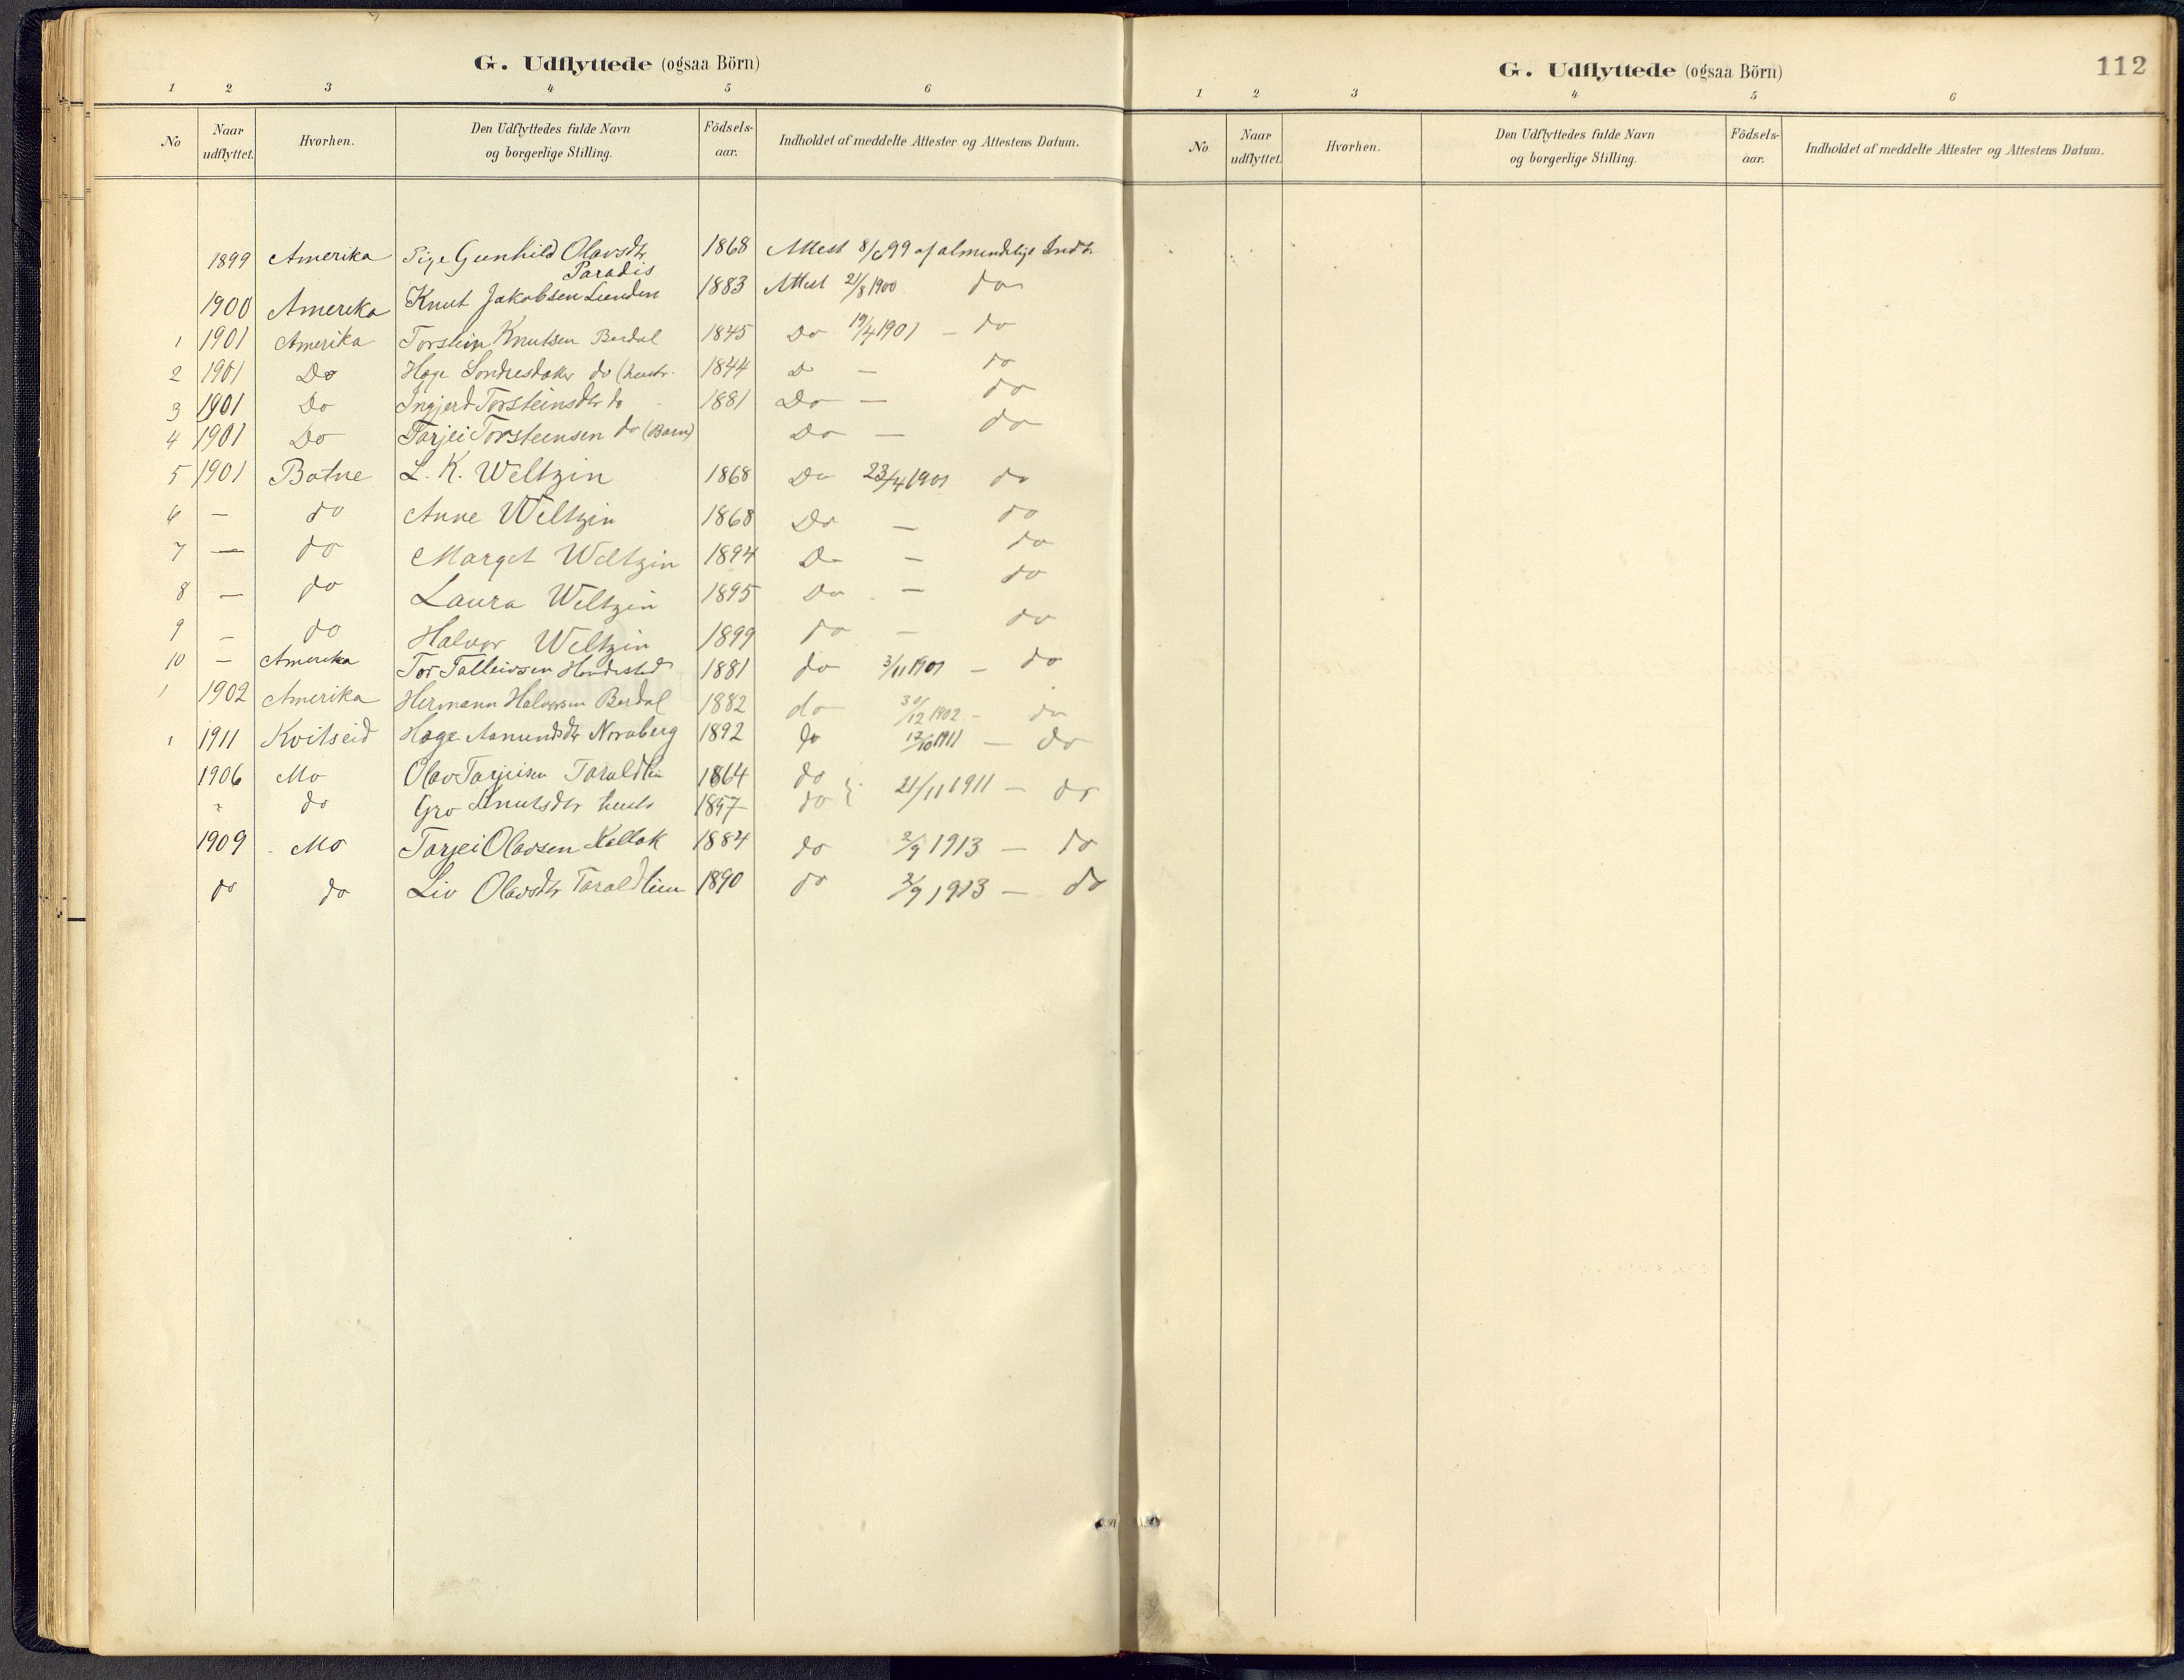 G. Udflyttede (ogsaa Börn)
1 2 3 4 5 6
No Naar udflyttet. Hvorhen. Den Udflyttedes fulde Navn og borgerlige Stilling. Födsels-aar. Indholdet af meddelte Attester og Attestens Datum.
1899 Amerika Pige Gunhild Olavsdtr 1868 Attest 99 af almindelige Indh.
Paradis
1900 Amerika Knut Jakobsen Lunden 1883 Attest 21/8 1900 do
1 1901 Amerika Torstein Knutsen Berdal 1845 Do 19/4 1901 — do
2 1901 Do Hæge do (hustr. 1844 D — do
3 1901 Do Ingjerd Torsteinsdtr do 1881 Do — do
4 1901 Do Tarjei Torsteinsen do (Barn) Do — do
5 1901 Botne L. K. Weltzin 1868 Do 23/4 1901 do
6 — do Anne Weltzin 1868 Do — do
7 — do Marget Weltzin 1894 Do — do
8 — do Laura Weltzin 1895 Do — do
9 — do Halvor Weltzin 1899 do — do
10 — Amerika Tor Talleivsen 1881 do 3/11 1901 — do
1 1902 Amerika Hermann Halvorsen Berdal 1882 do 30/12 1902 — do
1 1911 Kvitseid Hæge Aamundsdtr Noraberg 1892 do 17/10 1911 — do
1906 Mo Olav Tarjeisen Taraldlien 1864 do
" do Gro Knutsdtr hustr 1857 do } 21/11 1911 — do
1909 Mo Tarjei Olavsen Kallak 1884 do 2/9 1913 — do
do do Liv Olavsdtr Taraldlien 1890 do 2/9 1913 — do
G. Udflyttede (ogsaa Börn) 112
1 2 3 4 5 6
No Naar udflyttet. Hvorhen. Den Udflyttedes fulde Navn og borgerlige Stilling. Födsels-aar. Indholdet af meddelte Attester og Attestens Datum.